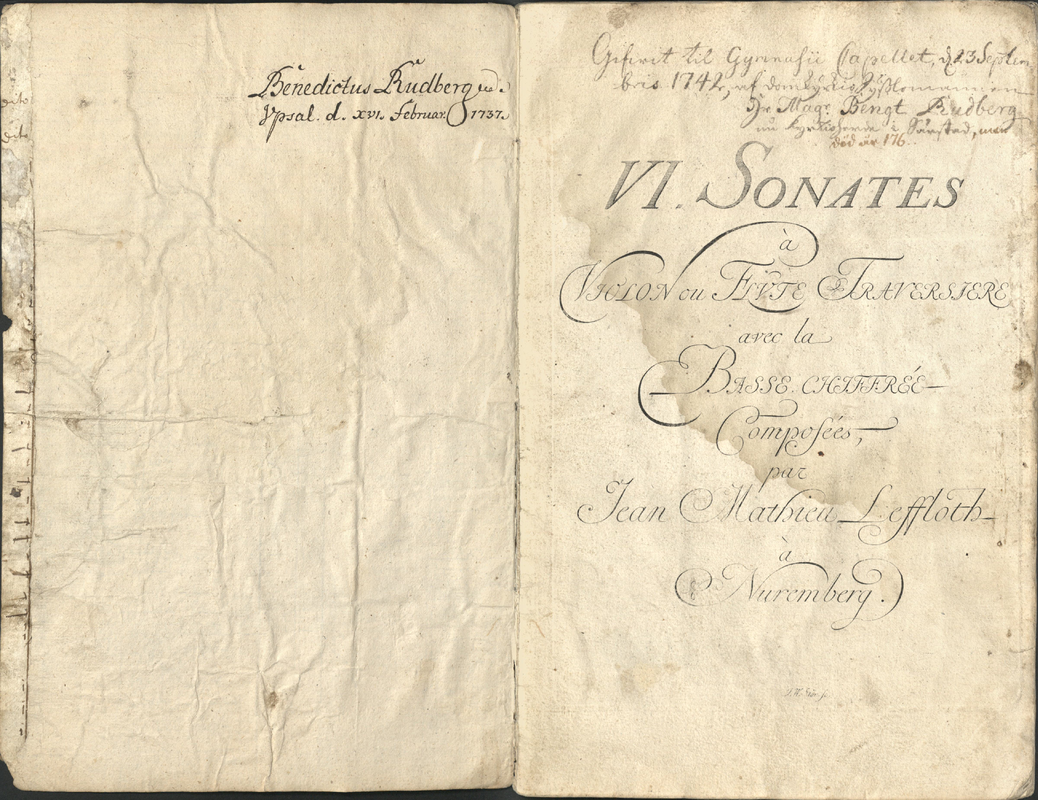 Benedictus Rudberg
Ypsal. d. XVI. Februar. 1737.
Gifwit til Gymnasii Capellet, d. 23 Septem
bris 1742, af domkyrkio Sysslomannen
Hr Magr. Bengt Rudberg
nu kyrkioherde i Sårstad, men
död år 176
VI. SONATES
à
VIOLON ou FLVTE TRAVERSIERE
avec la
BASSE CHIFFRÉE
Composées,
par
Jean Mathieu Leffloth
à
Nuremberg.